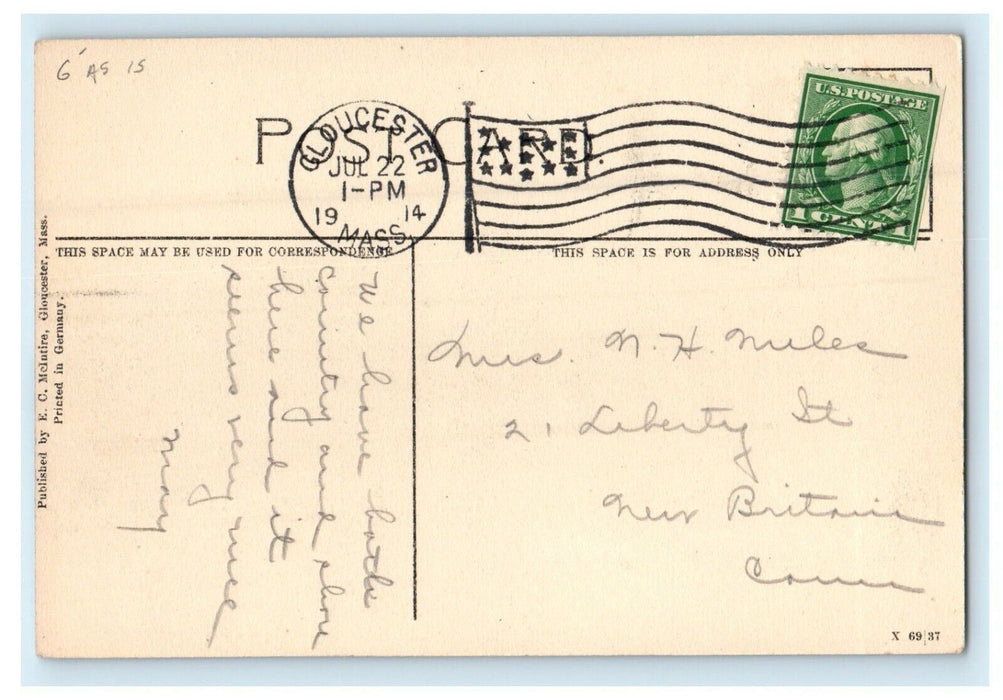 6 AS IS
POST CARD.
GLOUCESTER
JUL 22
1-PM
19 14
MASS.
U.S. POSTAGE
1 CENT 1
THIS SPACE MAY BE USED FOR CORRESPONDENCE
THIS SPACE IS FOR ADDRESS ONLY
Published by E. C. McIntire, Gloucester, Mass.
Printed in Germany.
We have both
country and shore
here and it
seems very nice
Mary
Mrs. N. H. Miles
21 Liberty St
New Britain
Conn
X 69 37